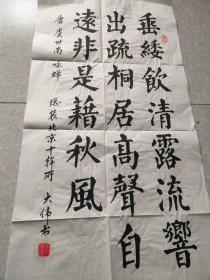 垂緌飲清露流響
出疏桐居高聲自
遠非是藉秋風
唐虞世南咏蟬 總裝北京十幹所 大偉书